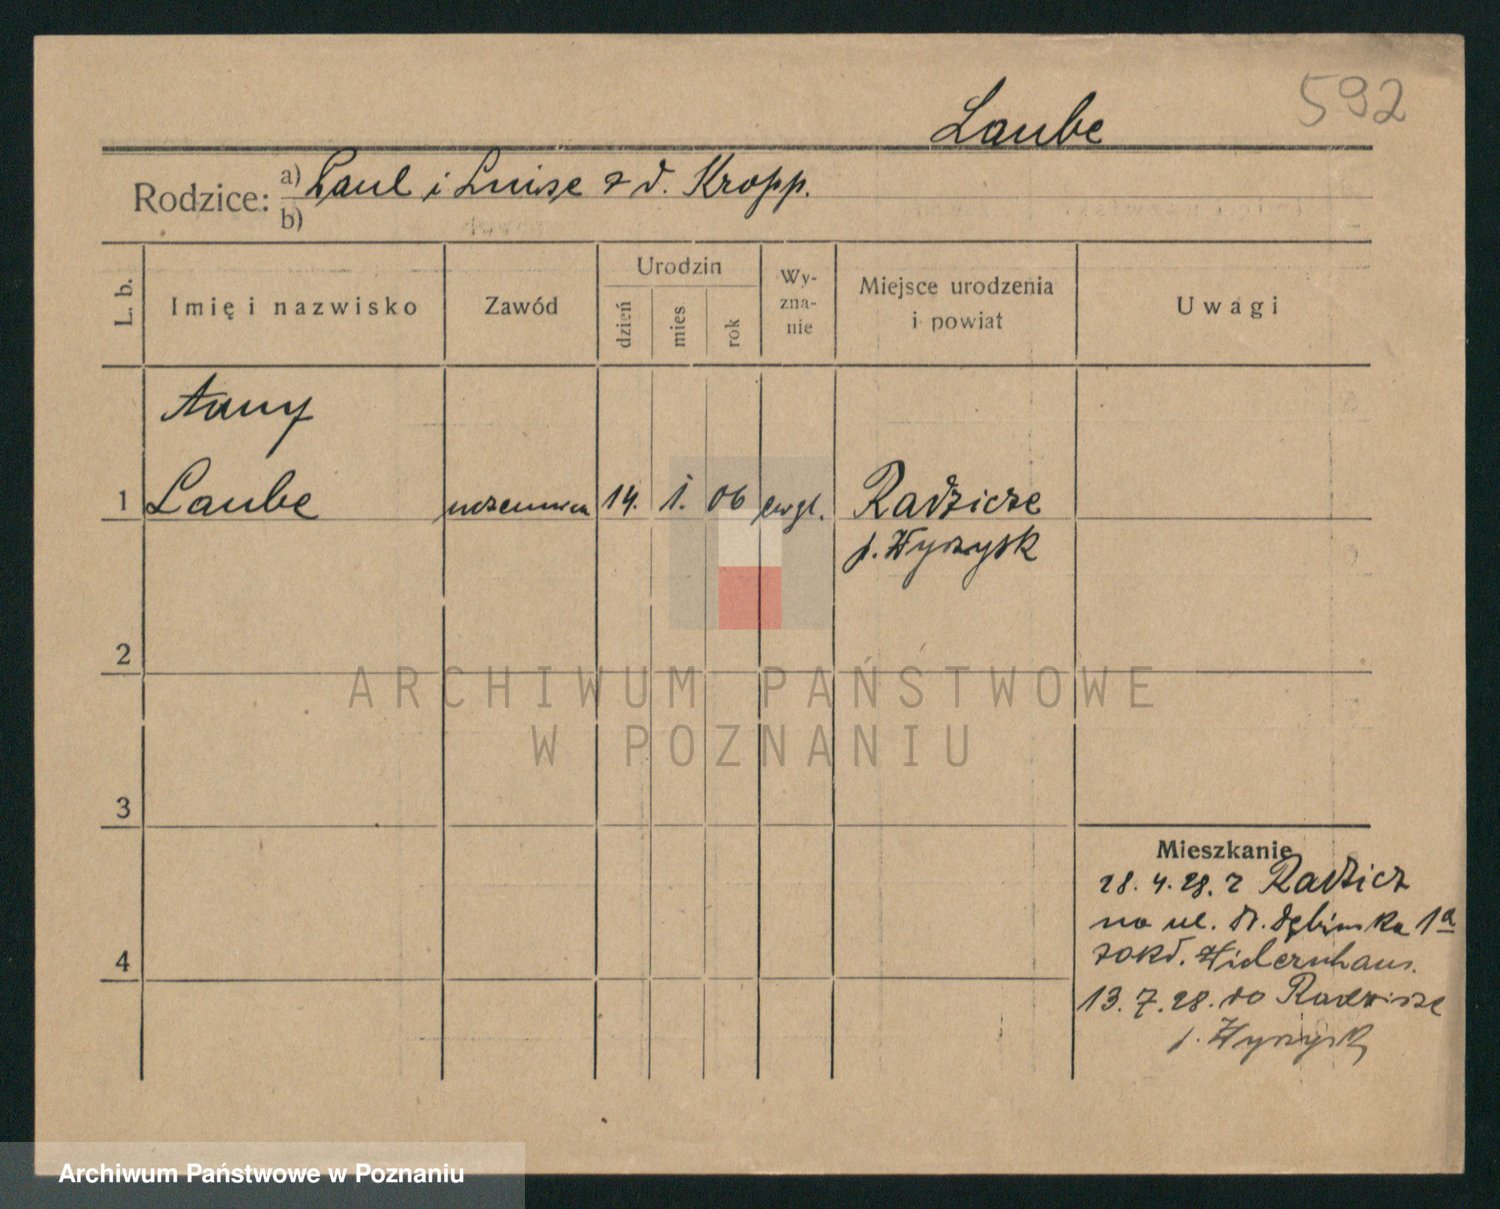 Laube 592
Rodzice: a) Paul i Luise z d. Kropp.
b)
L. b. Imię i nazwisko Zawód Urodzin dzień mies rok Wy-zna-nie Miejsce urodzenia i powiat Uwagi
Anny
1 Laube uczennica 14. 1. 06 ewgl. Radzicze
p. Wyrzysk
2
ARCHIWUM PAŃSTWOWE
W POZNANIU
3
Mieszkanie
28. 4. 28. z Radzicz
na ul. Dr. Dębinska 1a
4 zakł.
13. 7. 28. do Radzicze
p. Wyrzysk
Archiwum Państwowe w Poznaniu